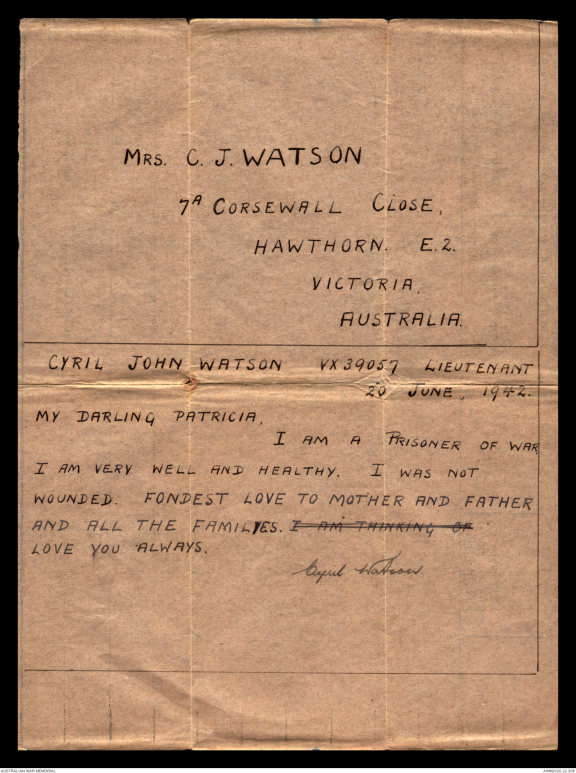 MRS. C. J. WATSON
7A CORSEWALL CLOSE,
HAWTHORN. E.2.
VICTORIA,
AUSTRALIA.
CYRIL JOHN WATSON VX39057 LIEUTENANT
20 JUNE, 1942.
MY DARLING PATRICIA,
I AM A PRISONER OF WAR
I AM VERY WELL AND HEALTHY. I WAS NOT
WOUNDED. FONDEST LOVE TO MOTHER AND FATHER
AND ALL THE FAMILYES. I AM THINKING OF
LOVE YOU ALWAYS.
Cyril Watson
AUSTRALIAN WAR MEMORIAL